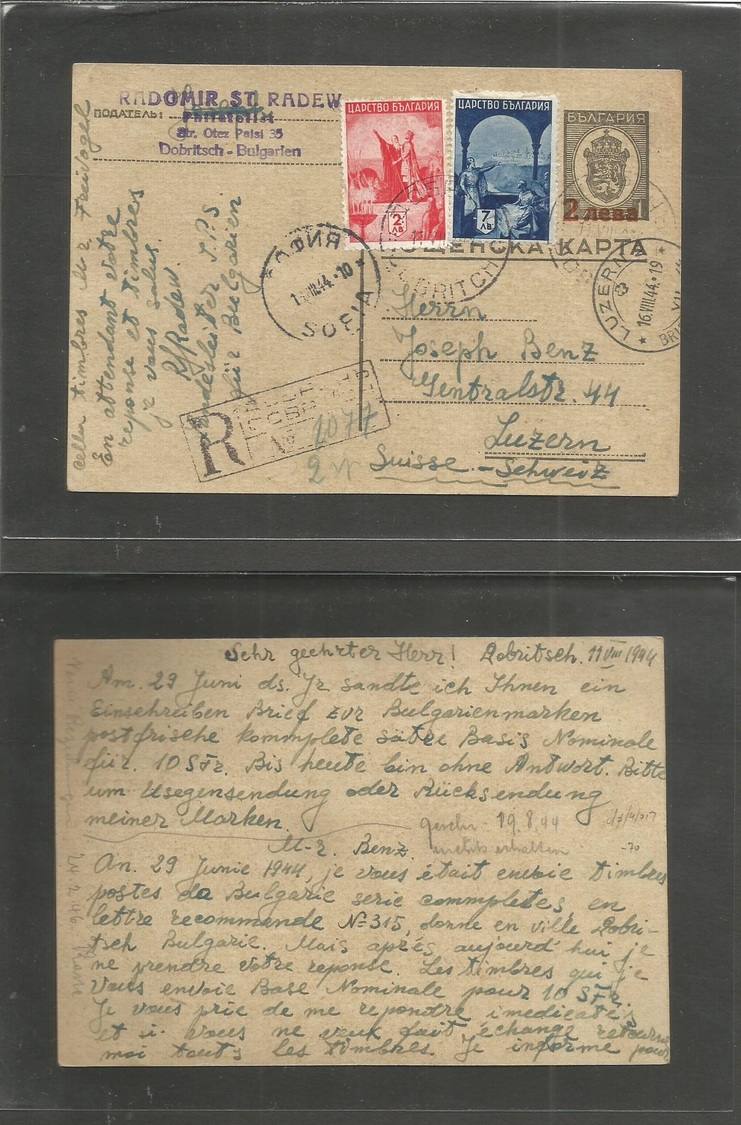 RADOMIR ST. RADEW
ПОДАТЕЛЬ:
Philatelist
Str. Otez Paisi 35
Dobritsch - Bulgarien
ЦАРСТВО БЪЛГАРИЯ
2 ЛВ
ЦАРСТВО БЪЛГАРИЯ
7 ЛВ
БЪЛГАРИЯ
2 лева
1
ПОЩЕНСКА КАРТА
СОФИЯ
44·10
SOFIA
DOBRITCH
LUZERN
16.VIII.44·19
Herrn
Joseph Benz
Zentralstr. 44
Luzern
Suisse - Schweiz
R
№ 1077
celles timbres M-r Freivogel
En attendant votre
reponse et timbres
je vous salus.
R. Radew
Landesleiter
für Bulgarien
Sehr geehrter Herr! Dobritsch. 11 VIII 1944
Am. 29 Juni ds. Jr sandte ich Ihnen ein
Einschreiben Brief zur Bulgarienmarken
postfrische kommplete sätze Basis Nominale
für. 10 SFr. Bis heute bin ohne Antwort. Bitte
um Usegensendung oder Rücksendung
meiner Marken.
19.8.44
nichts erhalten
M-r. Benz.
An. 29 Junie 1944, je vous était envoie timbres
postes da Bulgarie serie commpletes en
lettre recommande № 315, donne en ville Dobri-
tsch Bulgarie. Mais aprés aujourd'hui je
ne prendre votre reponse. Les timbres qui je
vous envoie Base Nominale pour 10 SFr.
Je vous prie de me repondre imedicates
et i vous ne veux fait échange retourne
moi touts les timbres. Je informe pour